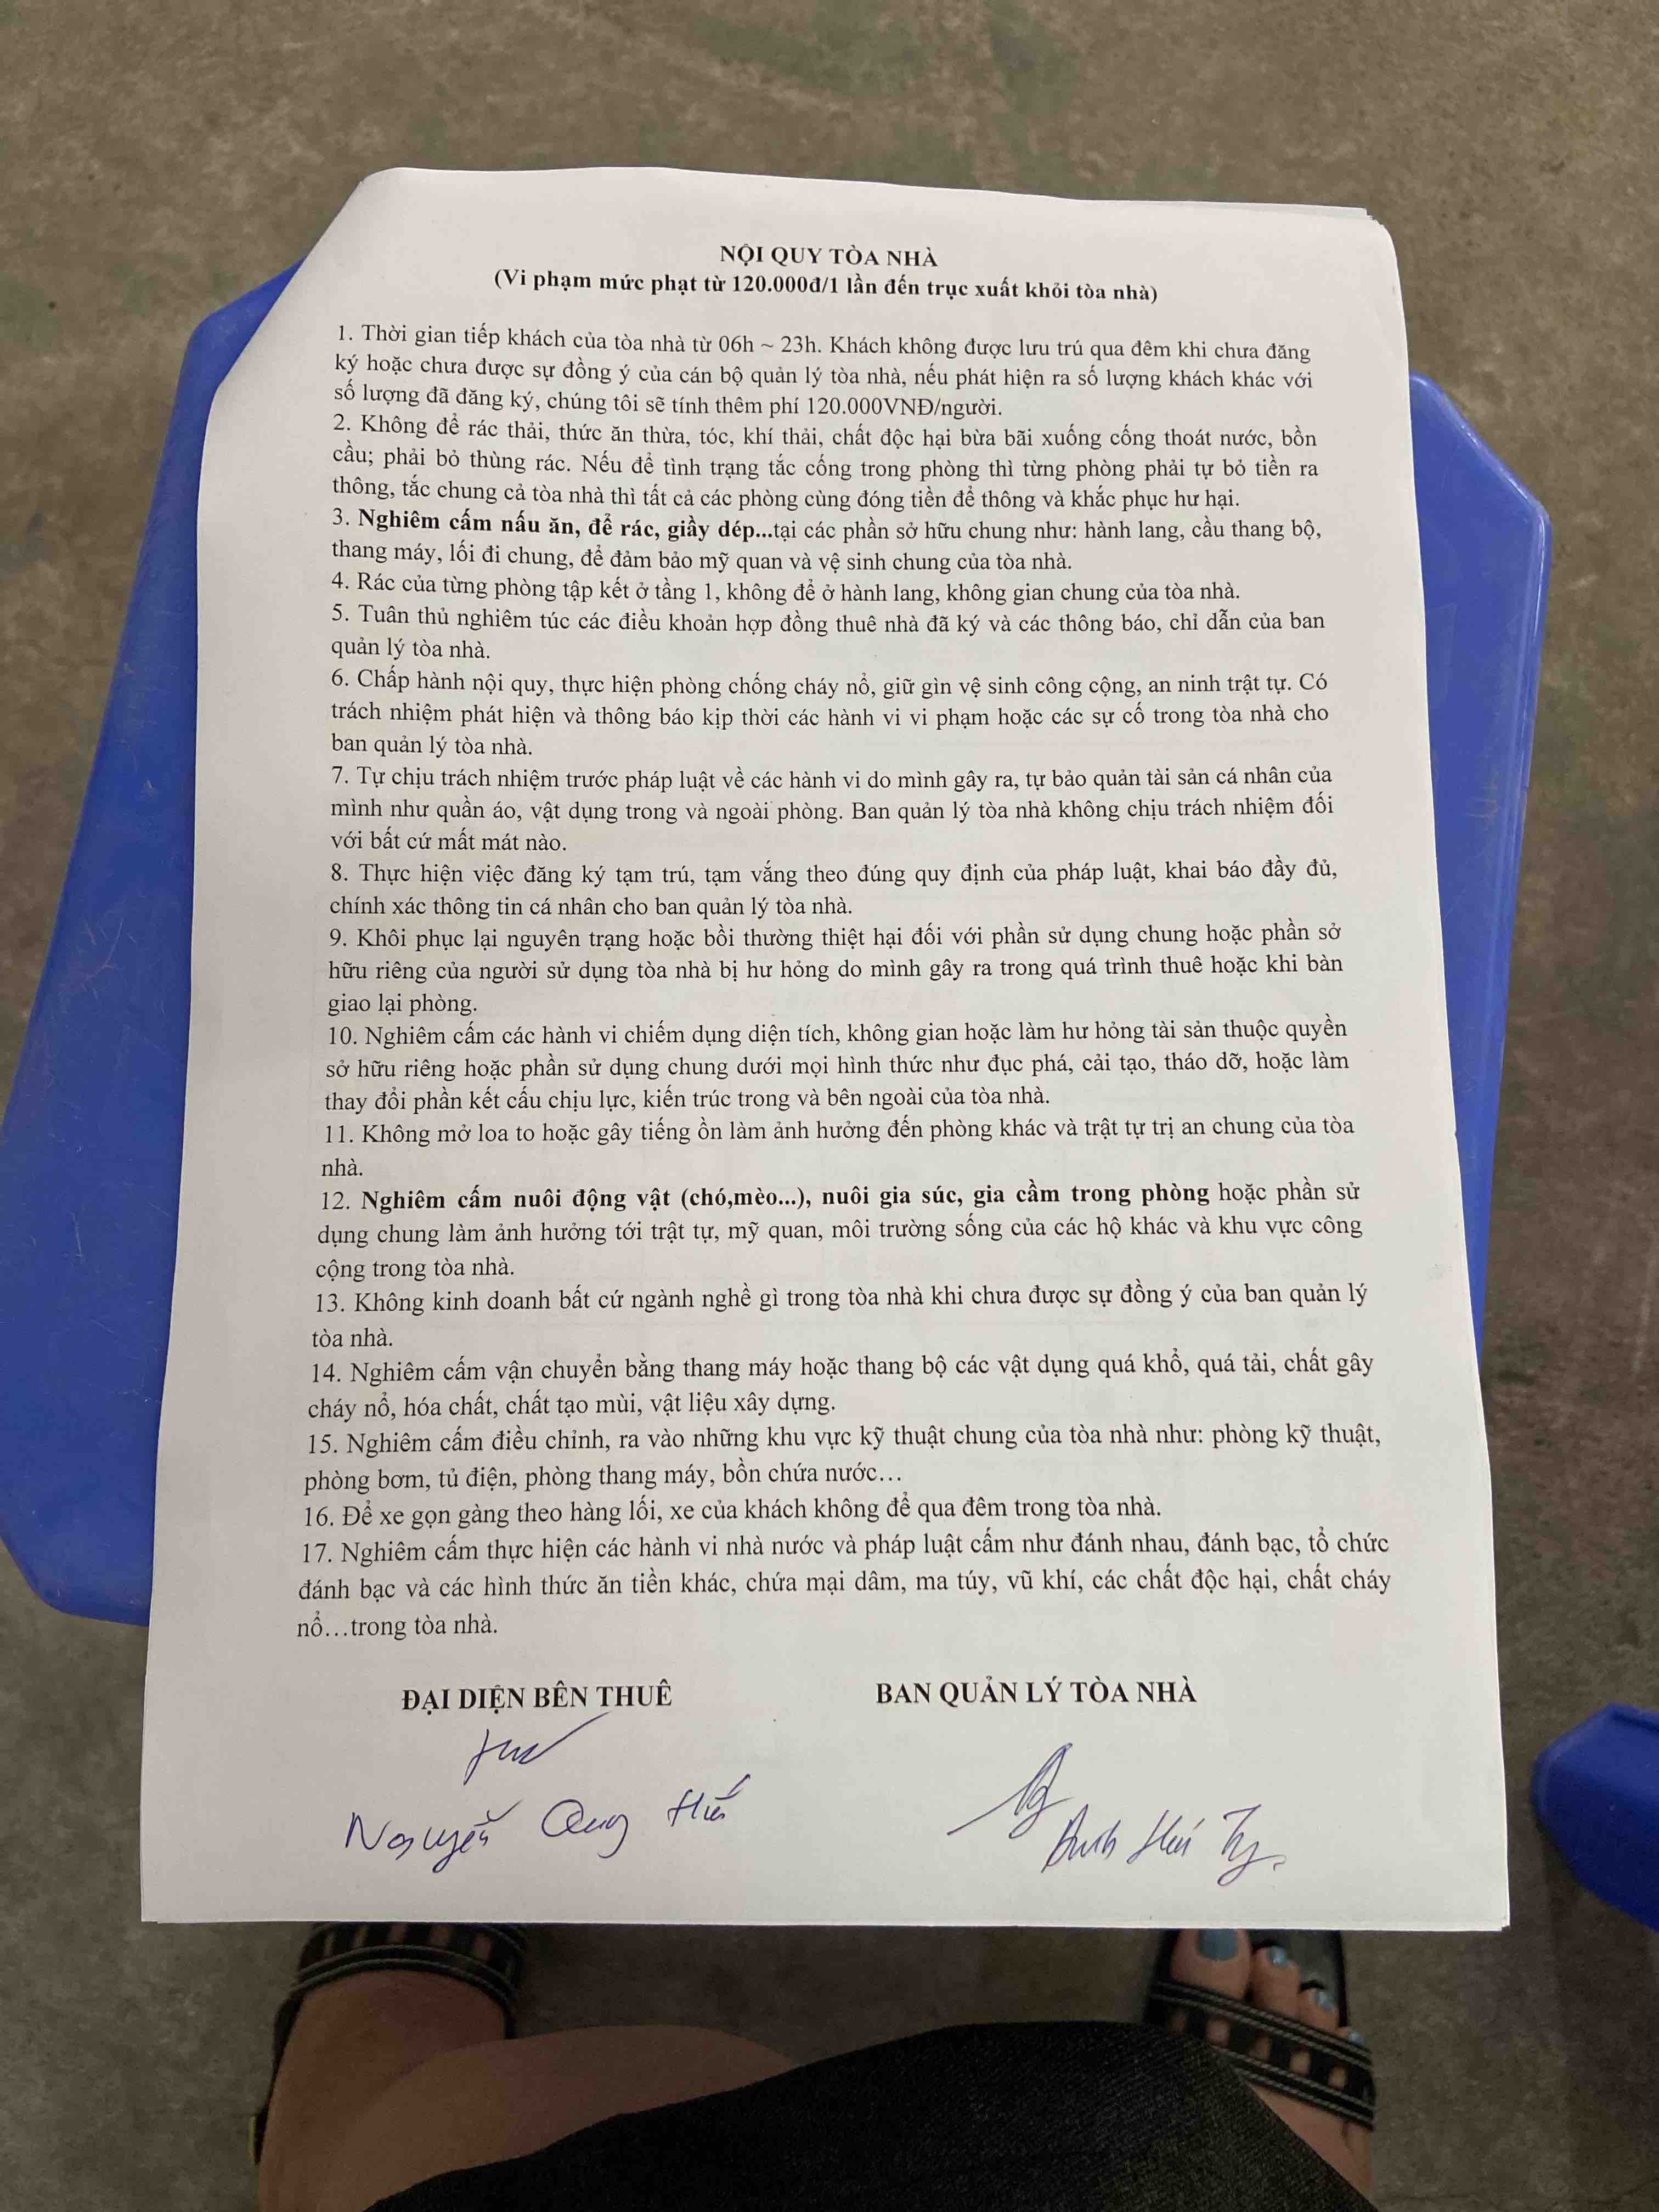 NỘI QUY TÒA NHÀ
(Vi phạm mức phạt từ 120.000đ/1 lần đến trục xuất khỏi tòa nhà)
1. Thời gian tiếp khách của tòa nhà từ 06h ~ 23h. Khách không được lưu trú qua đêm khi chưa đăng
ký hoặc chưa được sự đồng ý của cán bộ quản lý tòa nhà, nếu phát hiện ra số lượng khách khác với
số lượng đã đăng ký, chúng tôi sẽ tính thêm phí 120.000VNĐ/người.
2. Không để rác thải, thức ăn thừa, tóc, khí thải, chất độc hại bừa bãi xuống cống thoát nước, bồn
cầu; phải bỏ thùng rác. Nếu để tình trạng tắc cống trong phòng thì từng phòng phải tự bỏ tiền ra
thông, tắc chung cả tòa nhà thì tất cả các phòng cùng đóng tiền để thông và khắc phục hư hại.
3. Nghiêm cấm nấu ăn, để rác, giầy dép...tại các phần sở hữu chung như: hành lang, cầu thang bộ,
thang máy, lối đi chung, để đảm bảo mỹ quan và vệ sinh chung của tòa nhà.
4. Rác của từng phòng tập kết ở tầng 1, không để ở hành lang, không gian chung của tòa nhà.
5. Tuân thủ nghiêm túc các điều khoản hợp đồng thuê nhà đã ký và các thông báo, chỉ dẫn của ban
quản lý tòa nhà.
6. Chấp hành nội quy, thực hiện phòng chống cháy nổ, giữ gìn vệ sinh công cộng, an ninh trật tự. Có
trách nhiệm phát hiện và thông báo kịp thời các hành vi vi phạm hoặc các sự cố trong tòa nhà cho
ban quản lý tòa nhà.
7. Tự chịu trách nhiệm trước pháp luật về các hành vi do mình gây ra, tự bảo quản tài sản cá nhân của
mình như quần áo, vật dụng trong và ngoài phòng. Ban quản lý tòa nhà không chịu trách nhiệm đối
với bất cứ mất mát nào.
8. Thực hiện việc đăng ký tạm trú, tạm vắng theo đúng quy định của pháp luật, khai báo đầy đủ,
chính xác thông tin cá nhân cho ban quản lý tòa nhà.
9. Khôi phục lại nguyên trạng hoặc bồi thường thiệt hại đối với phần sử dụng chung hoặc phần sở
hữu riêng của người sử dụng tòa nhà bị hư hỏng do mình gây ra trong quá trình thuê hoặc khi bàn
giao lại phòng.
10. Nghiêm cấm các hành vi chiếm dụng diện tích, không gian hoặc làm hư hỏng tài sản thuộc quyền
sở hữu riêng hoặc phần sử dụng chung dưới mọi hình thức như đục phá, cải tạo, tháo dỡ, hoặc làm
thay đổi phần kết cấu chịu lực, kiến trúc trong và bên ngoài của tòa nhà.
11. Không mở loa to hoặc gây tiếng ồn làm ảnh hưởng đến phòng khác và trật tự trị an chung của tòa
nhà.
12. Nghiêm cấm nuôi động vật (chó,mèo...), nuôi gia súc, gia cầm trong phòng hoặc phần sử
dụng chung làm ảnh hưởng tới trật tự, mỹ quan, môi trường sống của các hộ khác và khu vực công
cộng trong tòa nhà.
13. Không kinh doanh bất cứ ngành nghề gì trong tòa nhà khi chưa được sự đồng ý của ban quản lý
tòa nhà.
14. Nghiêm cấm vận chuyển bằng thang máy hoặc thang bộ các vật dụng quá khổ, quá tải, chất gây
cháy nổ, hóa chất, chất tạo mùi, vật liệu xây dựng.
15. Nghiêm cấm điều chỉnh, ra vào những khu vực kỹ thuật chung của tòa nhà như: phòng kỹ thuật,
phòng bơm, tủ điện, phòng thang máy, bồn chứa nước…
16. Để xe gọn gàng theo hàng lối, xe của khách không để qua đêm trong tòa nhà.
17. Nghiêm cấm thực hiện các hành vi nhà nước và pháp luật cấm như đánh nhau, đánh bạc, tổ chức
đánh bạc và các hình thức ăn tiền khác, chứa mại dâm, ma túy, vũ khí, các chất độc hại, chất cháy
nổ…trong tòa nhà.
ĐẠI DIỆN BÊN THUÊ BAN QUẢN LÝ TÒA NHÀ
Nguyễn